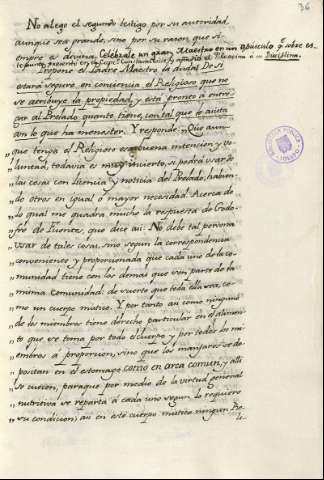 36
No alego el segundo testigo por su autoridad,
aunque sea grande, sino por su razon que si-
empre es divina. Celebrale un gran Maestro en un opúsculo q sobre es-
Disciplina.
Propone el Padre Maestro la duda: De si
estará seguro en conciencia el Religioso que no
se atribuye la propiedad, y está pronto à entre-
gar al Prelado quanto tiene, con tal que lo asista
con lo que ha menester. Y responde: Que aun-
" que tenga el Religioso esa buena intencion y vo-
" luntad, todavia es muy incierto, si podrá usar de
" las cosas con licencia y noticia del Prelado, habien-
" do otros en igual o mayor necesidad. Acerca de
" lo qual me quadra mucho la respuesta de Godo-
" fre de Fuentes, que dice asi: No debe tal persona
" usar de tales cosas, sino segun la correspondencia
" conveniente y proporcionada que cada uno de la co-
" munidad tiene con los demas que son parte de la
" misma Comunidad: de suerte que toda ella sea co-
" mo un cuerpo mistico. Y por tanto asi como ninguno
" de los miembros tiene derecho particular en el alimen-
" to que se toma por todo el cuerpo y por todos los mi-
" embros à proporcion, sino que los manjares se de-
" positan en el estomago como en arca comun, y alli
" se cuecen, paraque por medio de la virtud general
" nutritiva se reparta à cada uno segun lo requiere
" su condicion; asi en este cuerpo mistico ningun Re-
BIBLIOTECA PUBLICA
TOLEDO